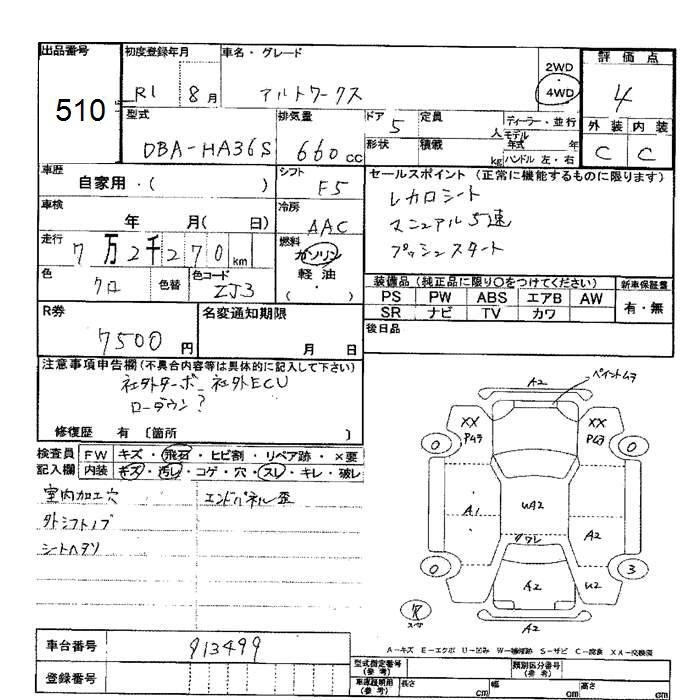 出品番号 初度登録年月 車名・グレード 2WD 評価点
510 R1 8月 アルトワークス 4WD 4
型式 排気量 ドア 定員 ディーラー・並行 外装 内装
DBA-HA36S 660cc 5 人 モデル年式 年 C C
形状 積載 kg ハンドル 左・右
車歴 シフト セールスポイント (正常に機能するものに限ります)
自家用・( ) F5 レカロシート
車検 冷房 マニュアル5速
年 月( 日) AAC プッシュスタート
走行 燃料
7万2千270km ガソリン
軽油
( )
色 色替 色コード 装備品(純正品に限り○をつけてください) 新車保証書
クロ ZJ3 PS PW ABS エアB AW 有・無
SR ナビ TV カワ
R券 名変通知期限 後日品
7500円 月 日
注意事項申告欄(不具合内容等は具体的に記入して下さい)
社外ターボ 社外ECU
ローダウン?
修復歴 有 〔箇所 〕
検査員 FW キズ・飛石・ヒビ割・リペア跡・×要
記入欄 内装 キズ・汚レ・コゲ・穴・スレ・キレ・破レ
室内加工穴 エンドパネル歪
外シフトノブ
シートヘタリ
A2 ペイントムラ
XX XX
0 0
A1 UA2 A2
ワレ
0 A2 U2 3
スペア A2
A-キズ E-エクボ U-凹み W-補修跡 S-サビ C-腐食 XX-交換済
車台番号 913499
登録番号
型式指定番号(参考) 類別区分番号(参考)
車庫証明用(参考) 長さ cm 幅 cm 高さ cm